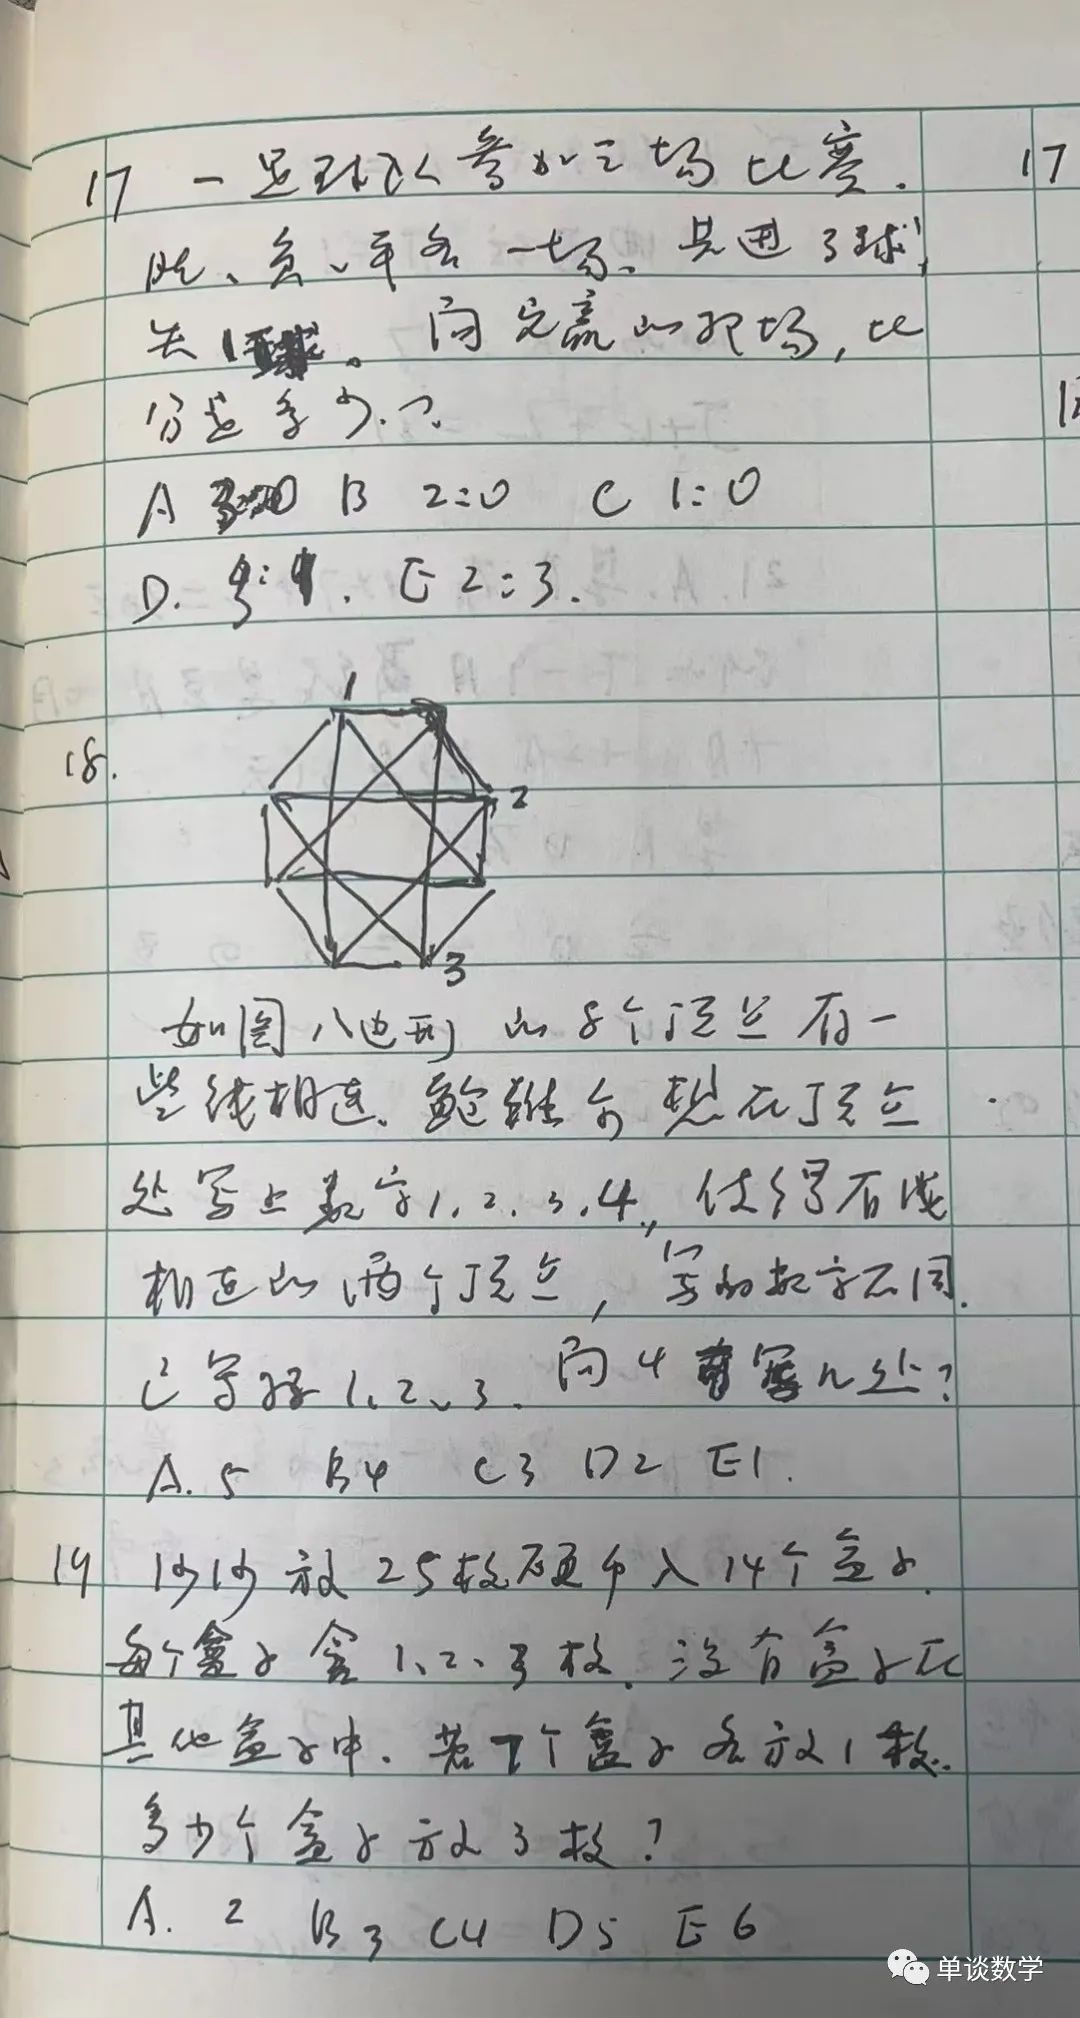 17 一足球队参加三场比赛.
胜、负、平各一场、共进3球,
失1球。问完赢的那场,比
分是多少.?
A 3:0 B 2:0 C 1:0
D. E 2:3.
18.
1
2
3
如图八边形的8个顶点有一
些线相连、鲍维尔想在顶点
处写上数字1.2.3.4,使得有线
相连的两个顶点,写的数字不同.
已写好1、2、3.问4写几处?
A.5 B4 C3 D2 E1.
19 沙沙放25枚硬币入14个盒子.
每个盒子含1、2、3枚.没有盒子在
其他盒子中.若7个盒子各放1枚.
多少个盒子放3枚?
A. 2 B3 C4 D5 E6
17
单谈数学